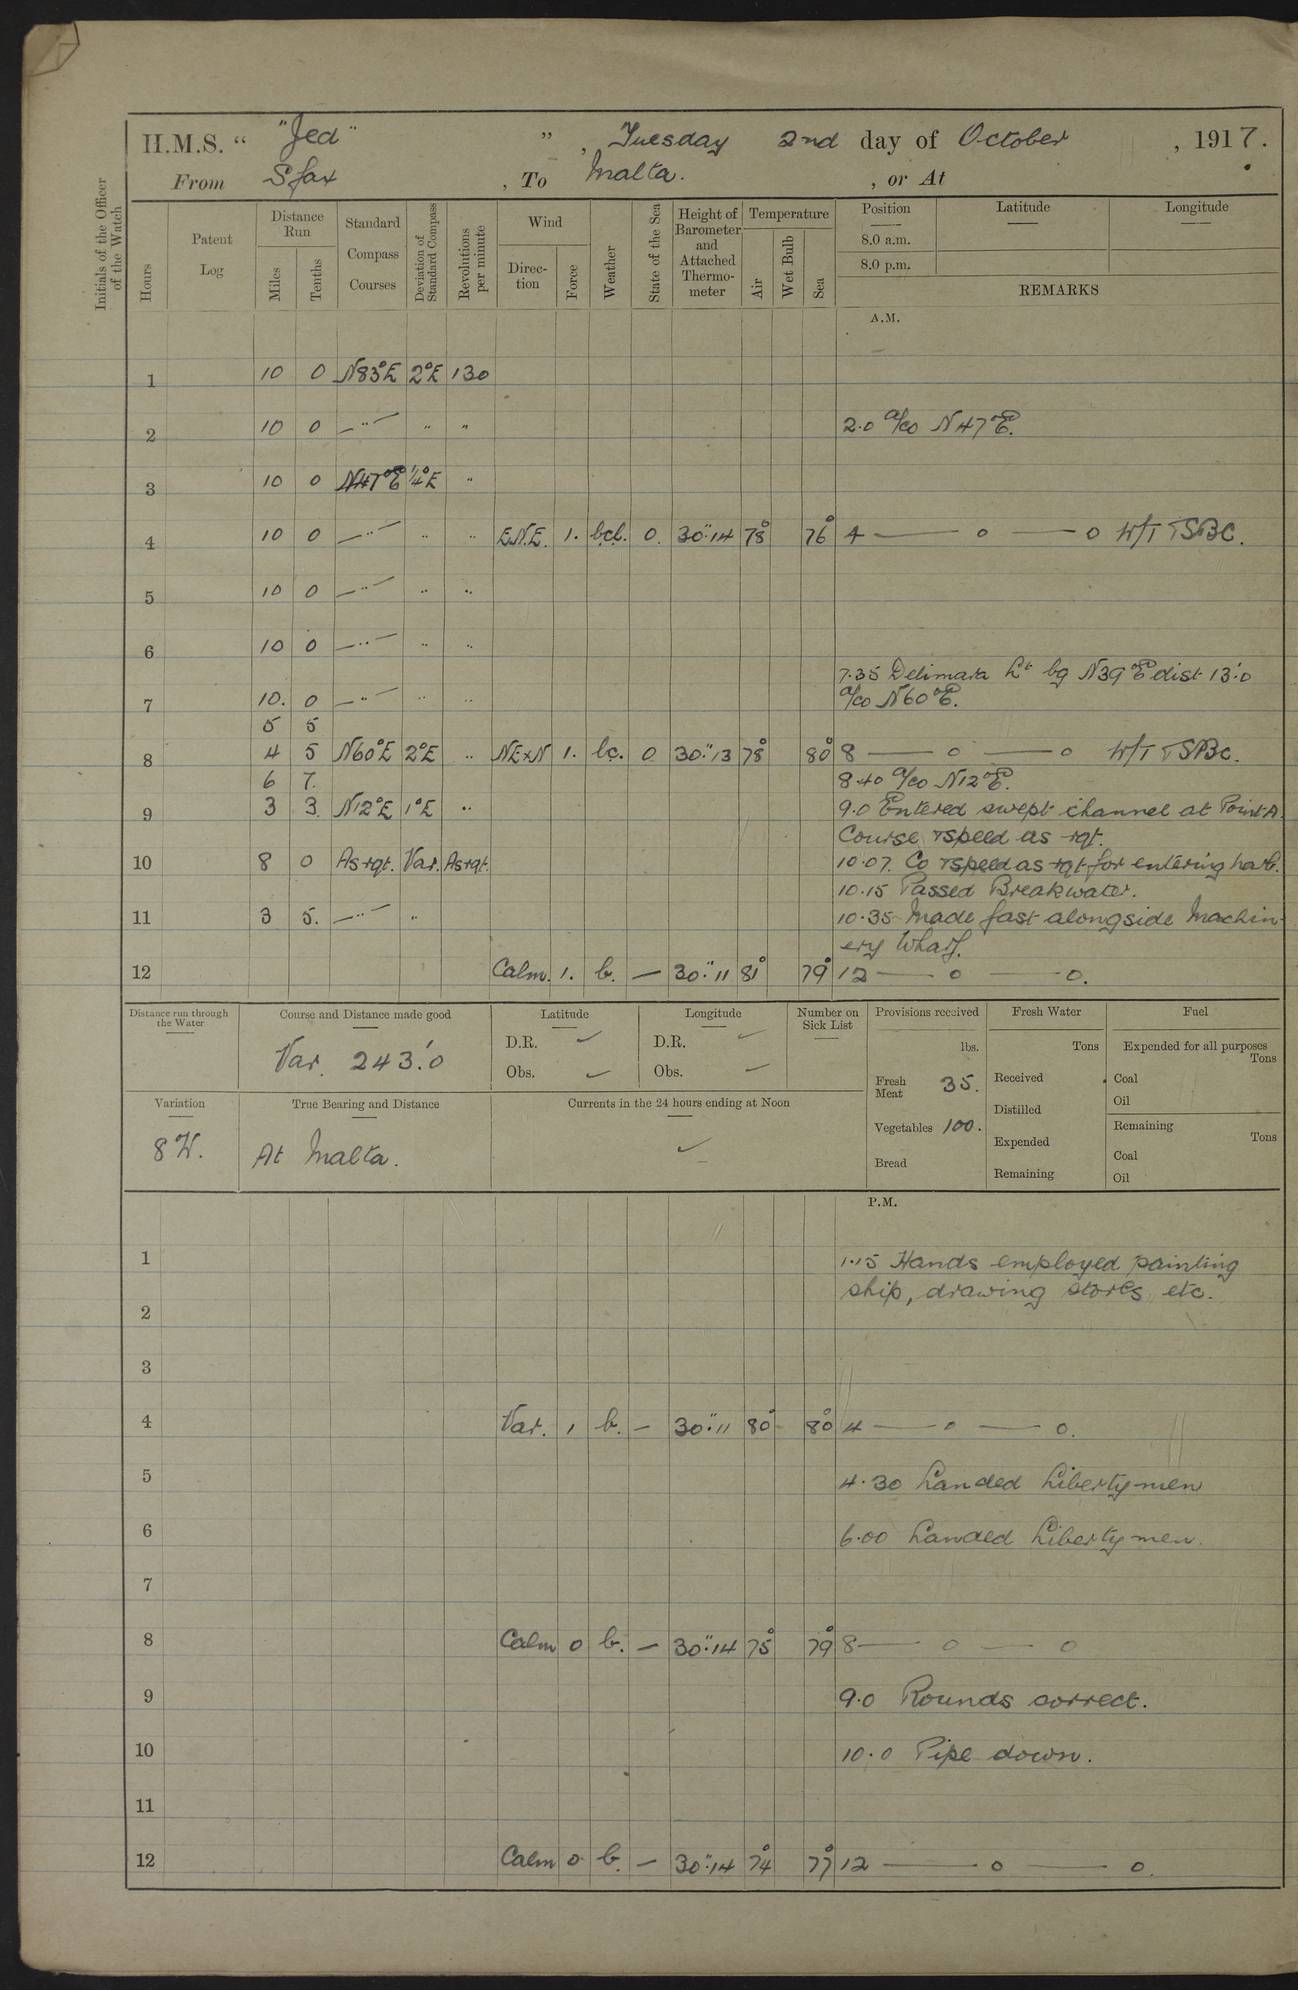 H.M.S. " "Jed" ", Tuesday 2nd day of October, 1917.
From Sfax, To Malta., or At
Initials of the Officer of the Watch
Hours
Patent Log
Distance Run
Miles
Tenths
Standard Compass Courses
Deviation of Standard Compass
Revolutions per minute
Wind
Direction
Force
Weather
State of the Sea
Height of Barometer and Attached Thermometer
Temperature
Air
Wet Bulb
Sea
Position Latitude Longitude
8.0 a.m.
8.0 p.m.
REMARKS
A.M.
1 10 0 N83°E 2°E 130
2 10 0 —"— " " 2.0 a/co N47°E.
3 10 0 N47°E ¼°E "
4 10 0 —"— " " E.N.E. 1. b.c.l. 0. 30".14 78° 76° 4 — o — o W/T TSBC.
5 10 0 —"— " "
6 10 0 —"— " "
7.35 Delimara Lt bg N39°E dist 13'.0
7 10. 0 —"— " " a/co N60°E.
5 5
8 4 5 N60°E 2°E " NE×N 1. bc. 0 30".13 78° 80° 8 — o — o W/T TSBC.
6 7. 8.40 a/co N12°E.
9 3 3. N12°E 1°E " 9.0 Entered swept channel at Point A.
Course & speed as rqt.
10 8 0 As rqt. Var. As rqt. 10.07. Co & speed as rqt for entering harb.
10.15 Passed Breakwater.
11 3 5. —"— " 10.35 Made fast alongside Machin-
ery Wharf.
12 Calm. 1. b. — 30".11 81° 79° 12 — o — o.
Distance run through the Water
Course and Distance made good
Var. 243'.0
Latitude
D.R. ✓
Obs. ✓
Longitude
D.R. ✓
Obs. ✓
Number on Sick List
Provisions received
lbs.
Fresh Meat 35.
Vegetables 100.
Bread
Fresh Water
Tons
Received
Distilled
Expended
Remaining
Fuel
Expended for all purposes
Tons
Coal
Oil
Remaining
Tons
Coal
Oil
Variation
8 W.
True Bearing and Distance
At Malta.
Currents in the 24 hours ending at Noon
✓
P.M.
1 1.15 Hands employed painting
ship, drawing stores etc.
2
3
4 Var. 1 b. — 30".11 80° 80° 4 — o — o.
5 4.30 Landed Libertymen
6 6.00 Landed Libertymen.
7
8 Calm 0 b. — 30".14 75° 79° 8 — o — o
9 9.0 Rounds correct.
10 10.0 Pipe down.
11
12 Calm 0 b. — 30".14 74° 77° 12 — o — o.